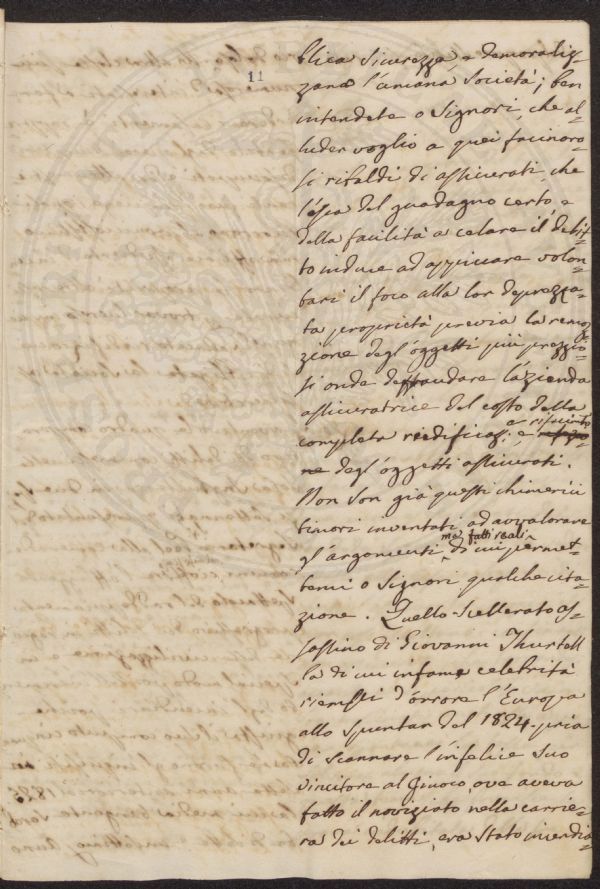 11
blica sicurezza e demoraliz=
zano l'umana società; ben
intendete o Signori, che al=
luder voglio a quei facinoro=
si ribaldi di assicurati, che
l'esca del guadagno certo, e
della facilità a celare il delit=
to induce ad appiccare volon=
tari il foco alla lor deprezza=
ta proprietà previa la remo=
zione degl'oggetti più prezzio=
si onde deffraudare l'azienda
assicuratrice del costo della
completa reedificaz.e e rifacimto
ne degl'oggetti assicurati.
Non son già questi chimerici
timori inventati ad avvalorare
gl'argomenti, ma fatti reali di cui permet=
temi o Signori qualche cita=
zione. Quello scellerato as=
sassino di Giovanni Thurtell
la di cui infame celebrità
riempì d'orrore l'Europa
allo spuntar del 1824. pria
di scannare l'infelice suo
vincitore al giuoco, ove aveva
fatto il noviziato nella carrie=
ra dei delitti, era stato incendia=